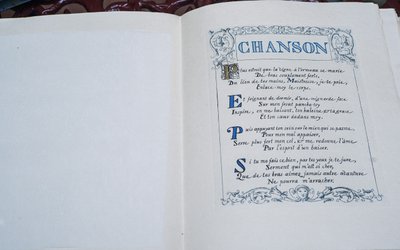 CHANSON
Plus estroit que la vigne à l'ormeau se marie
De bras souplement forts,
Du lien de tes mains, Maistresse, je te prie,
Enlace moy le corps.
Et feignant de dormir, d'une mignarde face
Sur mon front panche toy
Inspire, en me baisant, ton haleine et ta grace
Et ton cœur dedans moy.
Puis appuyant ton sein sur le mien qui se pasme,
Pour mon mal appaiser,
Serre plus fort mon col, et me redonne l'âme
Par l'esprit d'un baiser.
Si tu me fais ce bien, par tes yeux je te jure,
Serment qui m'est si cher,
Que de tes bras aimez jamais autre
Ne pourra m'arracher.